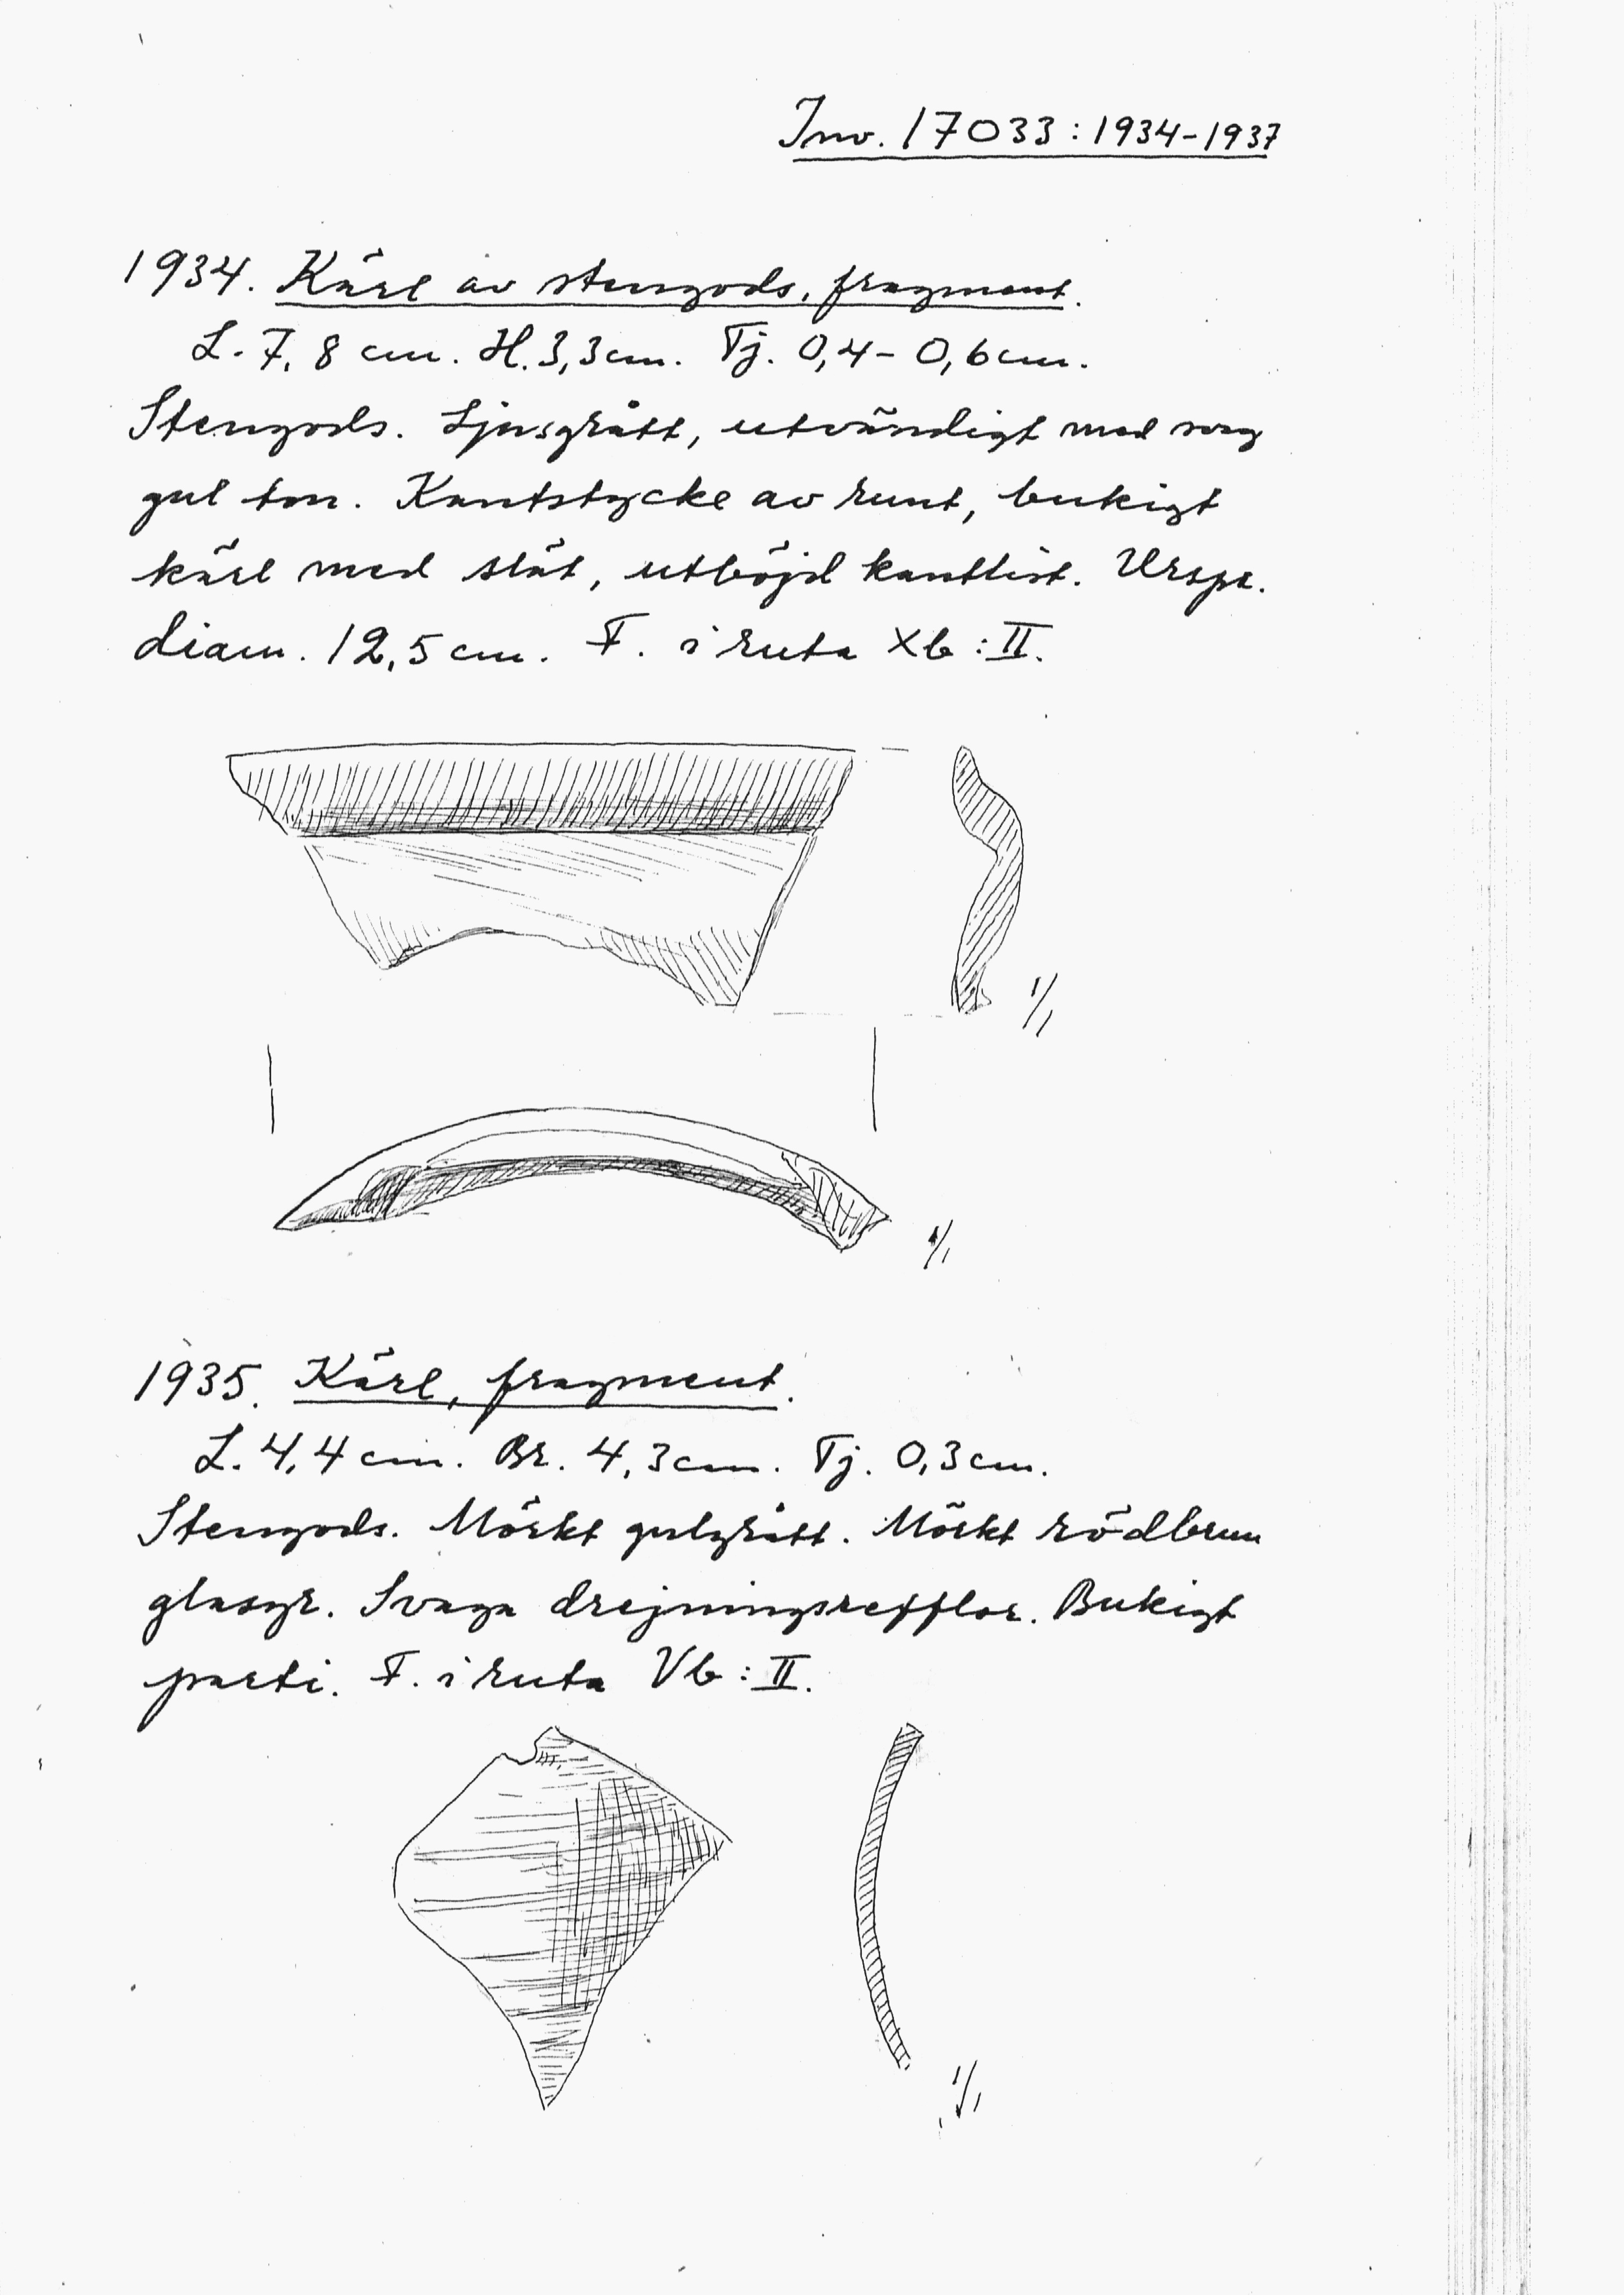 Inv. 17033:1934-1937
1934. Kärl av stengods, fragment.
L. 7,8 cm. H. 3,3 cm. Tj. 0,4-0,6 cm.
Stengods. Ljusgrått, utvändigt med svag
gul ton. Kantstycke av runt, bukigt
kärl med slät, utböjd kantlist. Urspr.
diam. 12,5 cm. F. i ruta Xb:II.
1/1
1/1
1935. Kärl, fragment.
L. 4,4 cm. Br. 4,3 cm. Tj. 0,3 cm.
Stengods. Mörkt gulgrått. Mörkt rödbrun
glasyr. Svaga drejningsrefflor. Bukigt
parti. F. i ruta Vb:II.
1/1